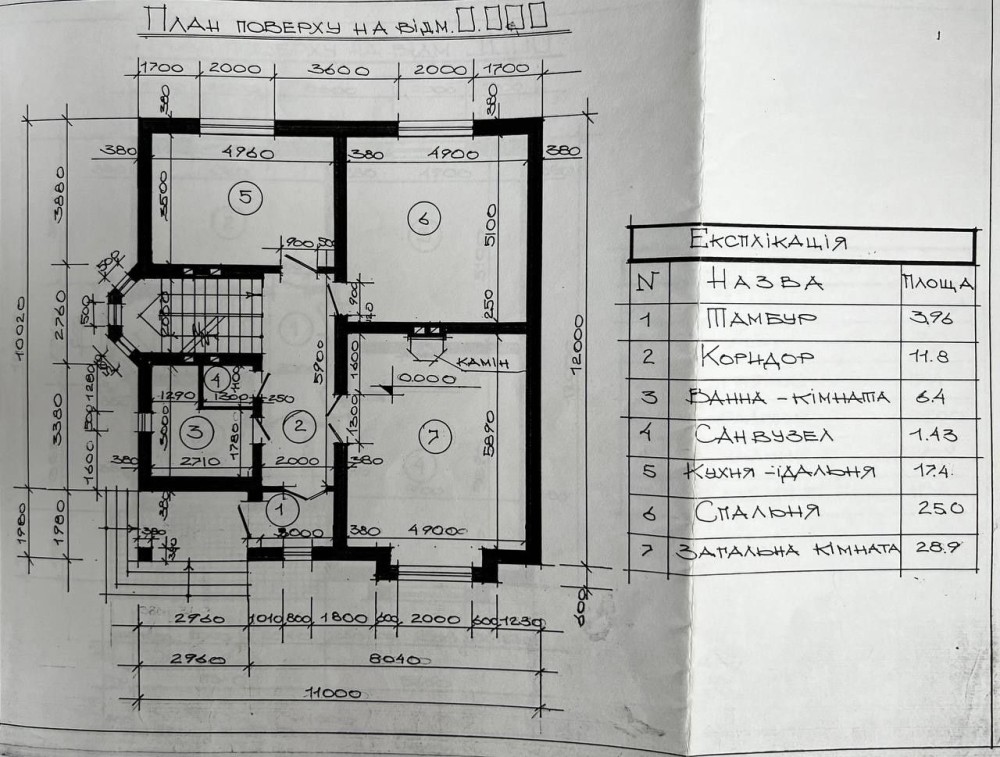 План поверху на відм. 0.000
1700 2000 3600 2000 1700
380 380
380 4960 380 4900 380
3880 3500 5 6 5100
900
500 900
10020 2760 500 2080 120 250 12000
5900
КАМІН
1280 1100 4 1600 0.000
1290 1300 250
3380 500 3000 3 1780 2 1300 7 5890
1600
380 2710 2000 380
380 1
1980 1980 380 3000 380 4900
600
2960 1010 800 1800 600 2000 600 1230
2960 8040
11000
Експлікація
N Назва Площа
1 Тамбур 3,96
2 Коридор 11.8
3 Ванна - кімната 6.4
4 Санвузел 1.43
5 Кухня - їдальня 17.4
6 Спальня 25.0
7 Запальна кімната 28.9